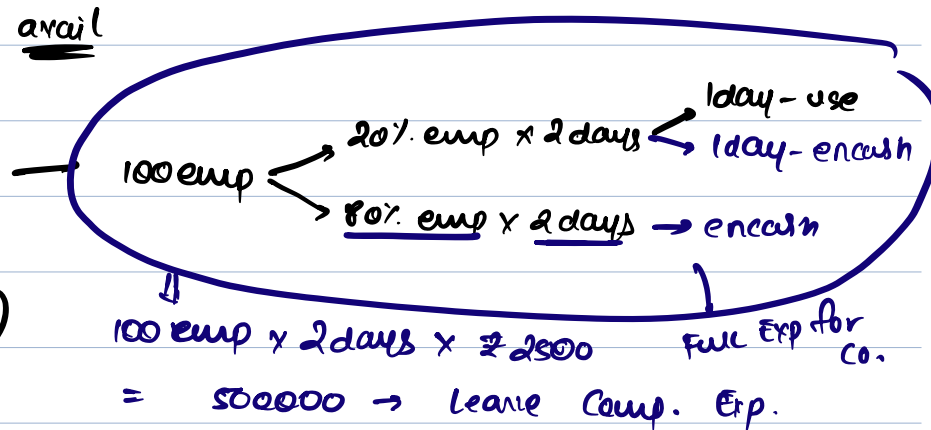 avail
1day - use
20% emp × 2 days
1day - encash
100 emp
80% emp × 2 days → encash
100 emp × 2 days × ₹ 2500
Full Exp for
Co.
= 500000 → Leave Comp. Exp.